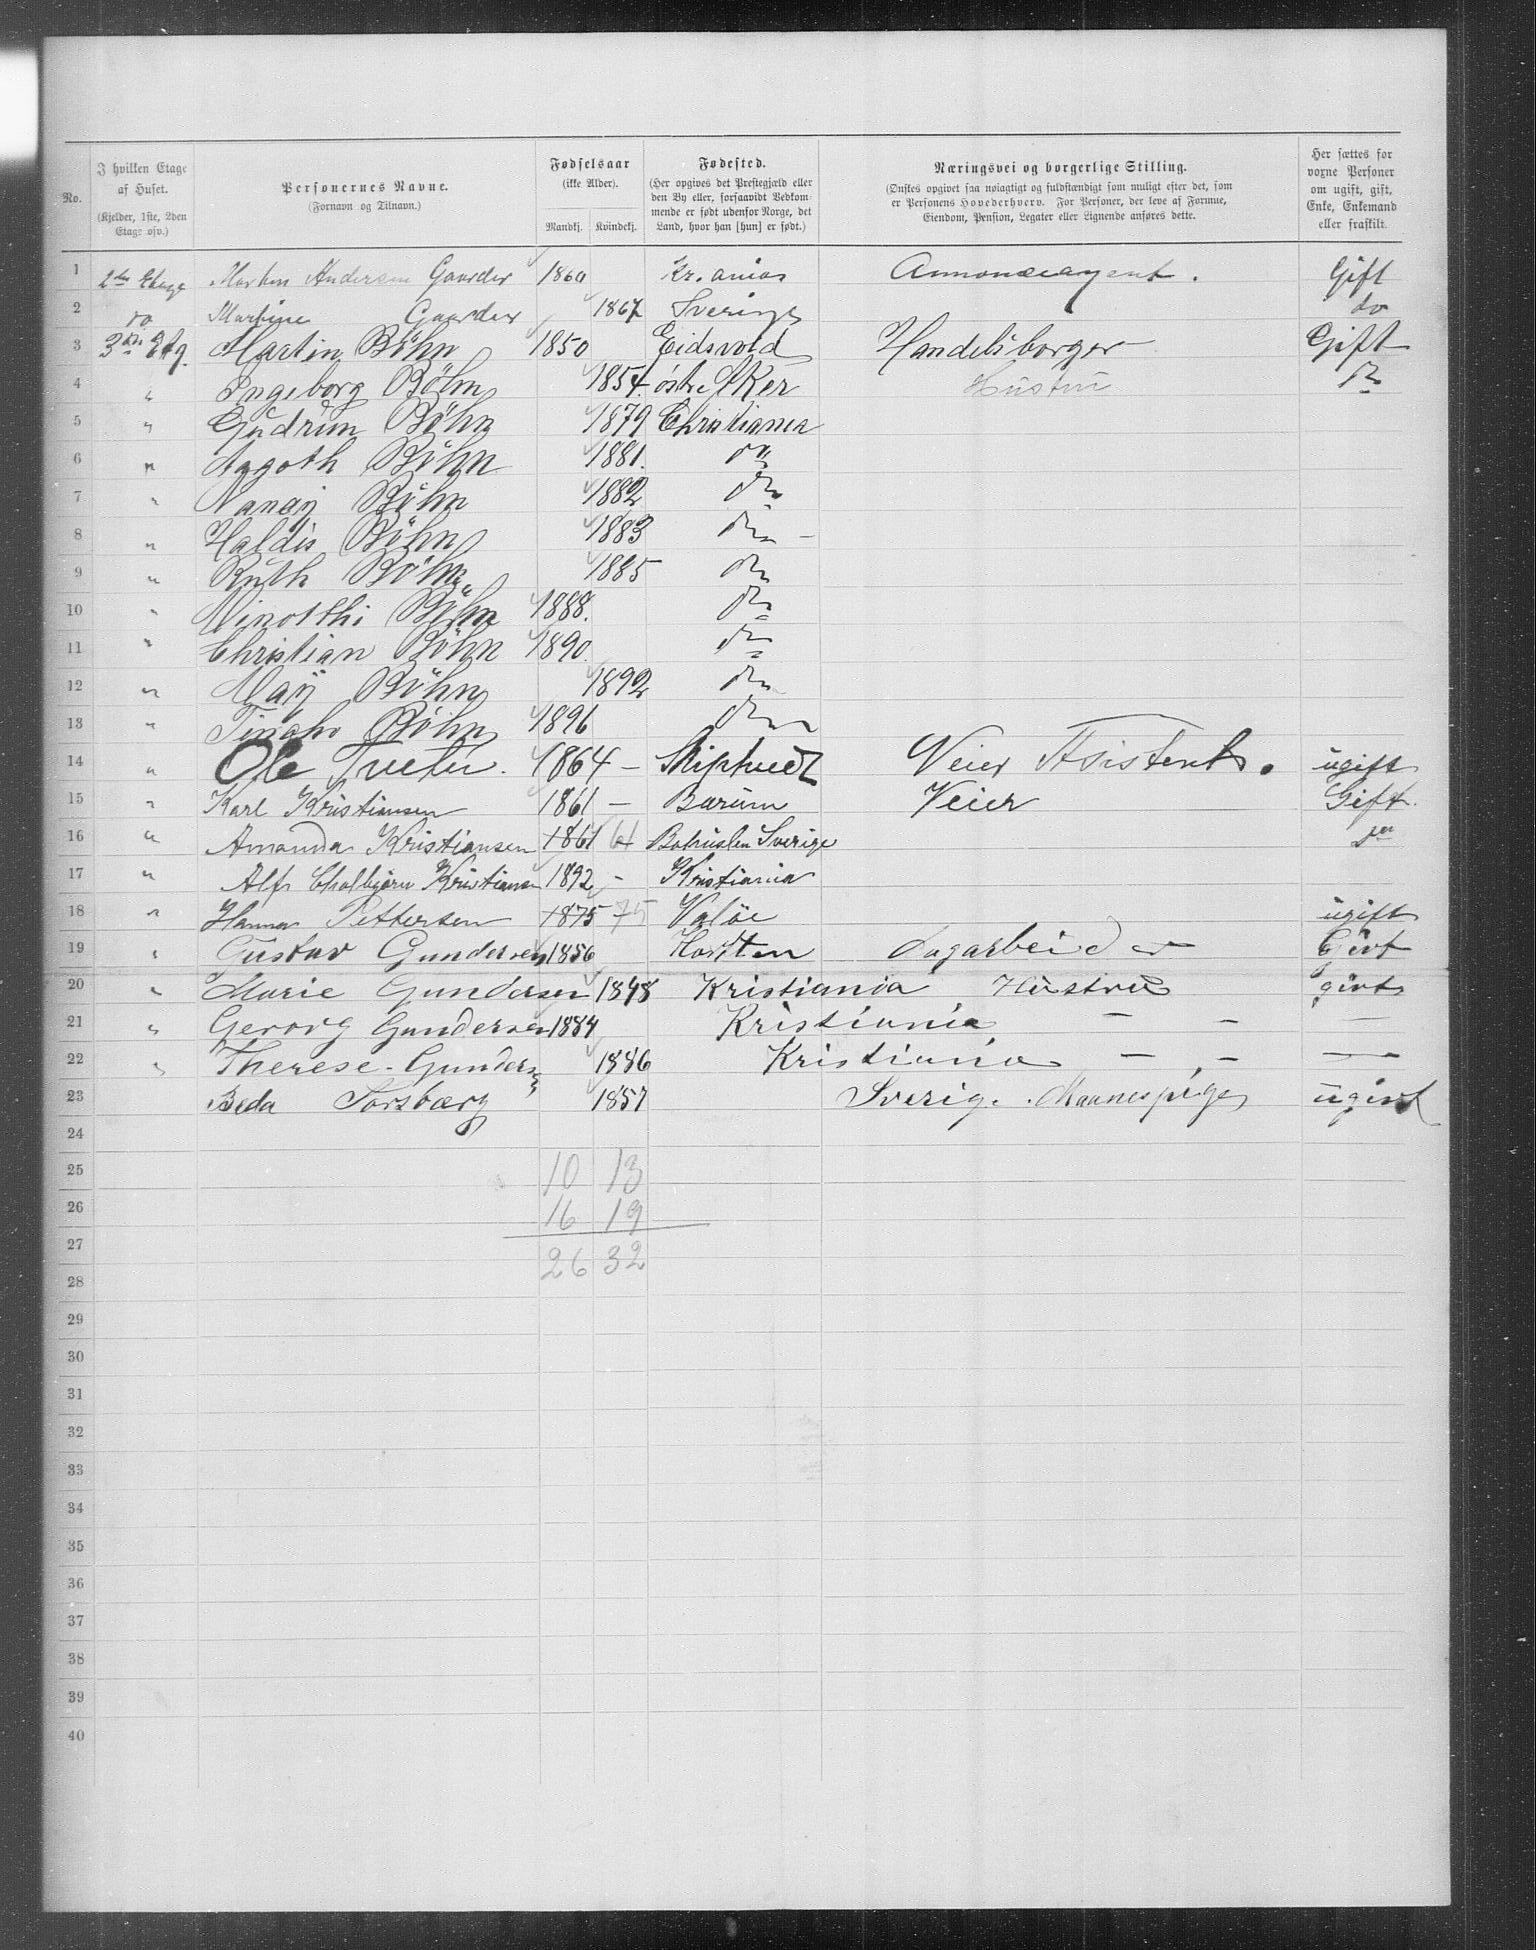 No.
I hvilken Etage af Huset.
(Kjelder, 1ste, 2den Etage osv.)
Personernes Navne.
(Fornavn og Tilnavn.)
Fødselsaar
(ikke Alder).
Mandkj. Kvindekj.
Fødested.
(Her opgives det Prestegjæld eller
den By eller, forsaavidt Vedkom-
mende er født udenfor Norge, det
Land, hvor han [hun] er født.)
Næringsvei og borgerlige Stilling.
(Ønskes opgivet saa nøiagtigt og fuldstændigt som muligt efter det, som
er Personens Hovederhverv. For Personer, der leve af Formue,
Eiendom, Pension, Legater eller Lignende anføres dette.
Her sættes for
voxne Personer
om ugift, gift,
Enke, Enkemand
eller fraskilt.
1 2den Etage Andersen Gaarder 1860 Kr.ania Annonceagent. Gift
2 do Gaarder 1867 Sverige do
3 3die Etg. Martin Böhn 1850 Eidsvold Handelsborger Gift
4 " Ingeborg Böhn 1854 østre AKer Hustru do
5 " Gudrun Böhn 1879 Christiania
6 " Aagoth Böhn 1881. do
7 " Nancy Böhn 1882 do
8 " Haldis Böhn 1883 do -
9 " Ruth Böhn 1885 do
10 " Böhn 1888. do
11 " Christian Böhn 1890. do
12 " May Böhn 1892 do
13 " Böhn 1896 do
14 " Ole Tveter. 1864 - Skiptvedt Veier Asistent. ugift
15 " Karl Kristiansen 1861 - Bærum Veier Gift.
16 " Amanda Kristiansen 1861 61 Bohuslen Sverige do
17 " Alf Kristiansen 1892 - Kristiania
18 " Hanna Pettersen 1875 75 Valöe ugift
19 " Gustav Gundersen 1856 Horten Dagarbeider Givt
20 " Marie Gundersen 1848 Kristiania Hustru givt
21 " Georg Gundersen 1884 Kristiania - - -
22 " Therese Gundersen 1886 Kristiania - - -
23 Beda 1857 Sverig. ugivt
24
25 10 13
26 16 19
27 26 32
28
29
30
31
32
33
34
35
36
37
38
39
40